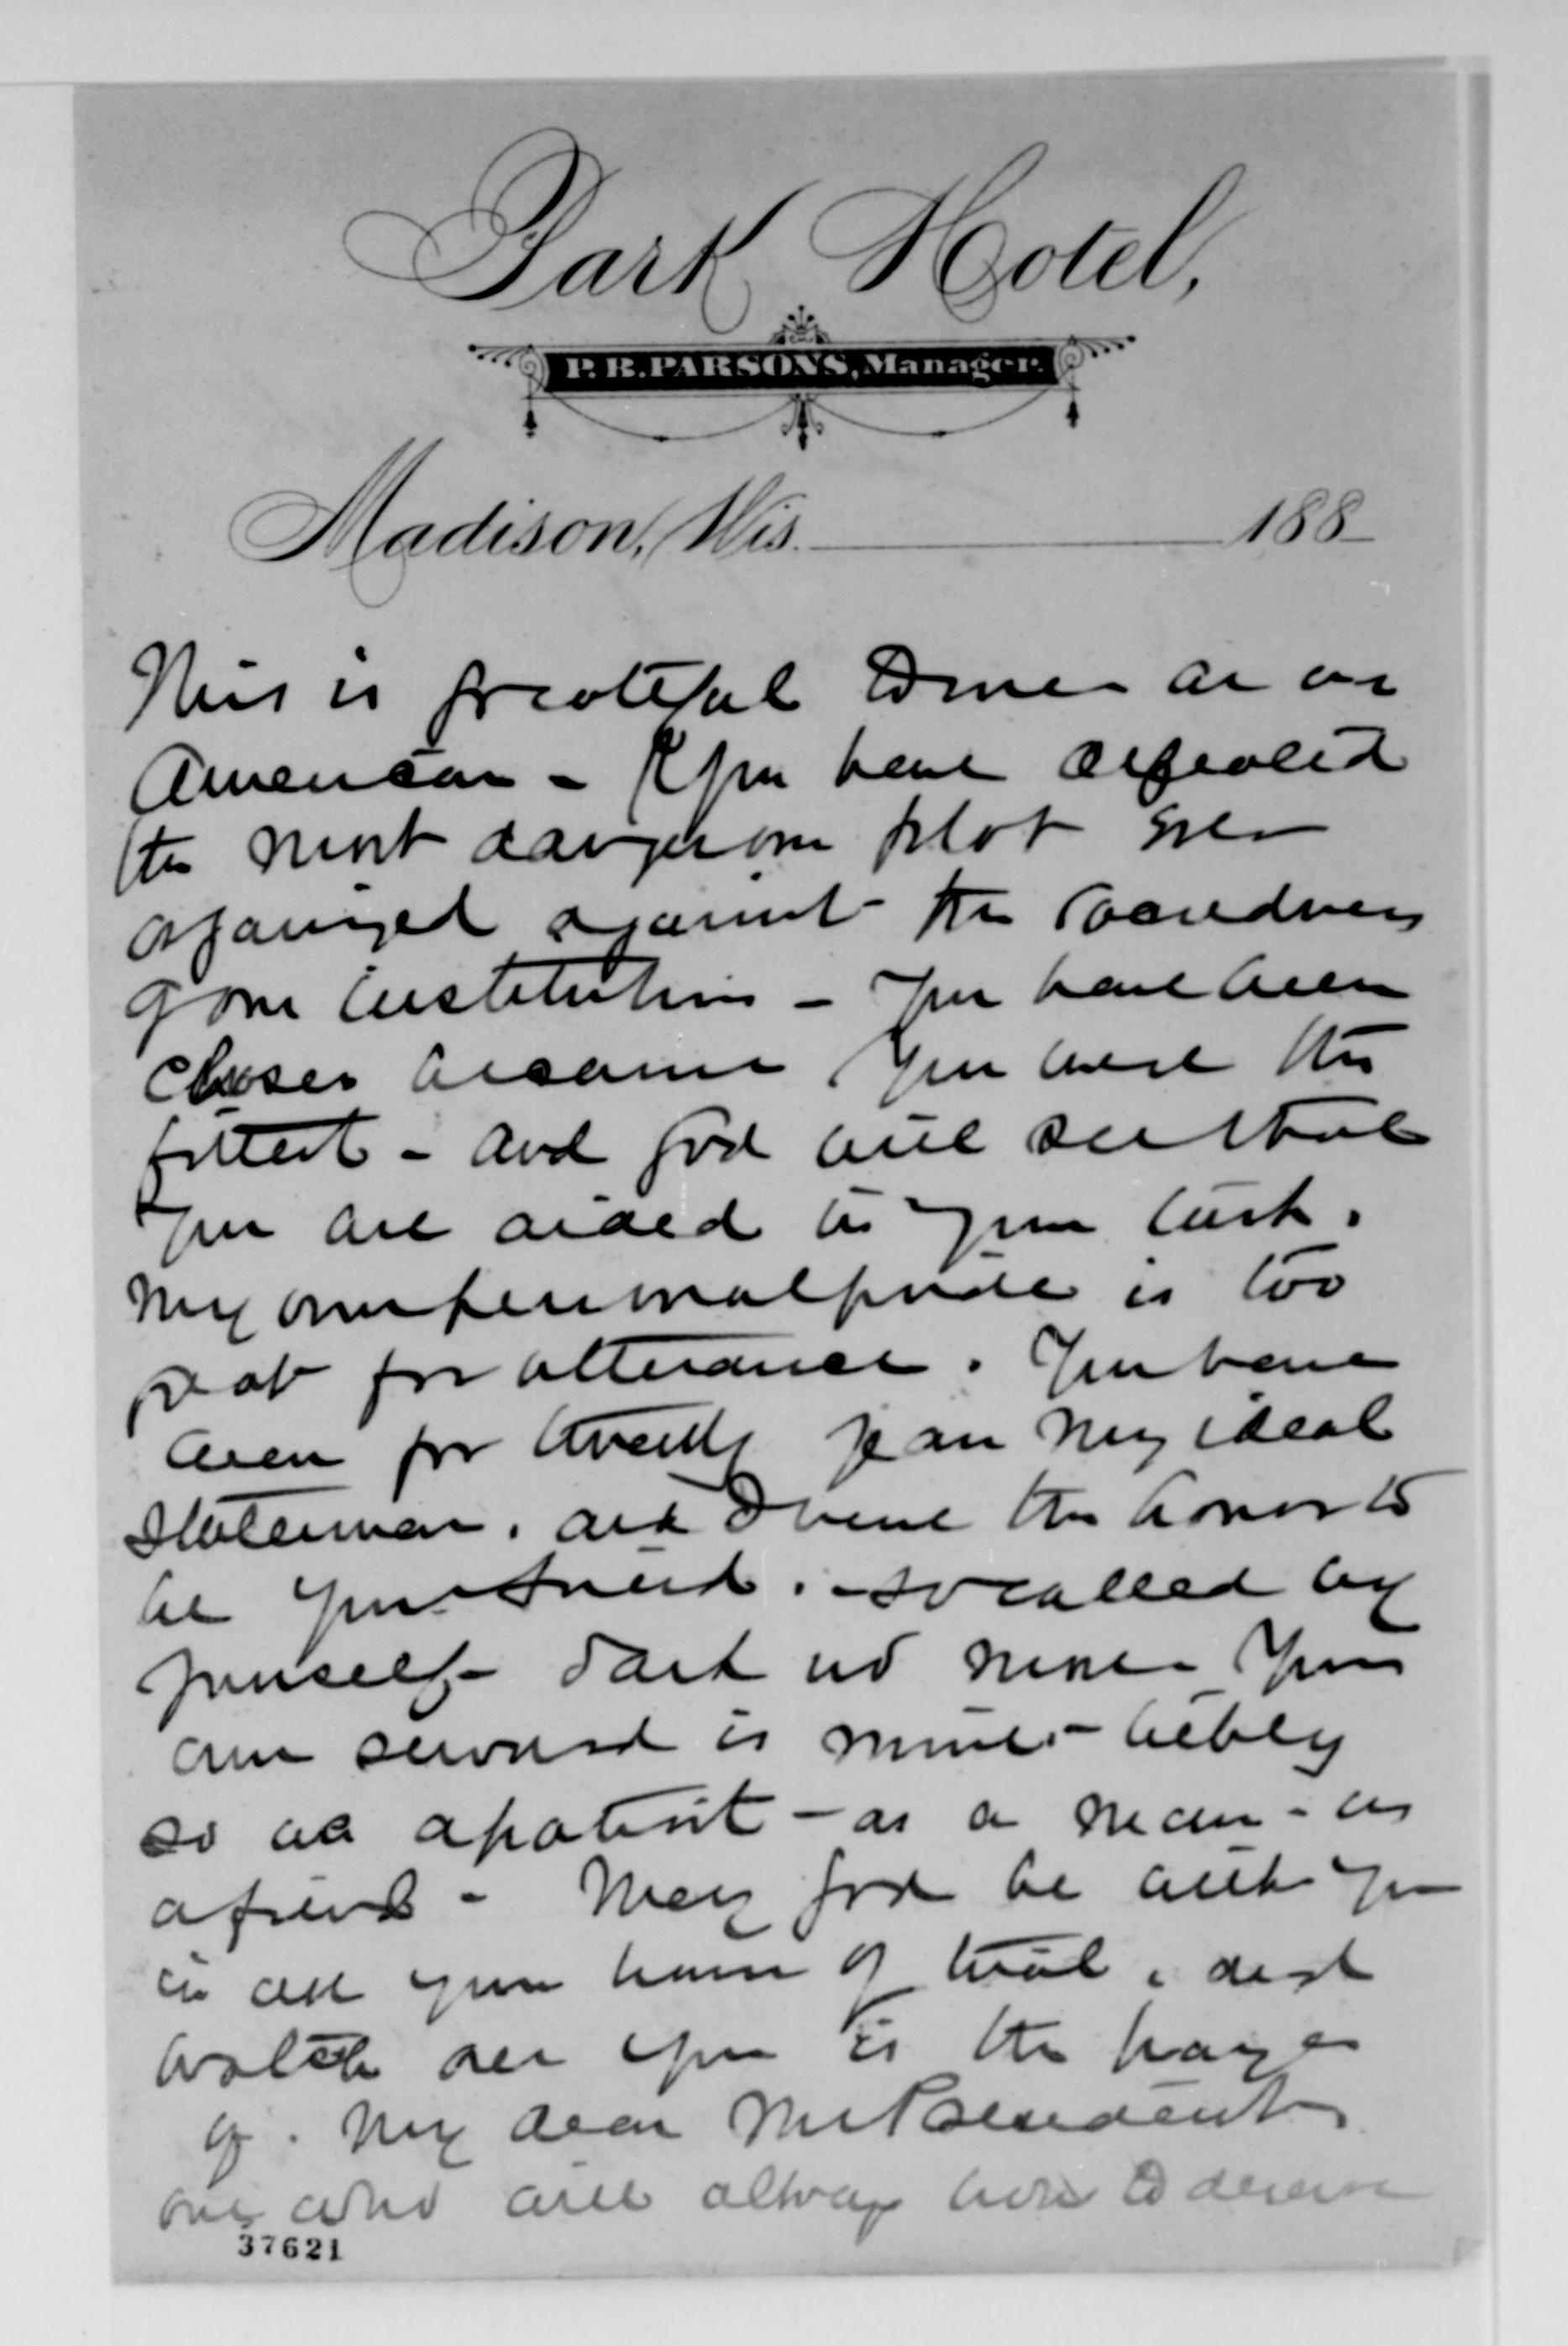 Park Hotel,
P. B. PARSONS, Manager.
Madison, Wis. 188
This is grateful to me as an
American - & you have defeated
the most dangerous plot ever
organized against the sacredness
of our institutions - You have been
chosen because you were the
fittest - and God will see that
you are aided in your task.
My own personal pride is too
great for utterance. You have
been for twenty years my ideal
Statesman. and I have the honor to
be your friend. so called by
yourself - I ask no more. Your
own reward is
so as a patriot - as a man - as
a friend - May God be with you
in all your hours of trial, and
watch over you is the prayer
of. My dear Mr President
one who will always have to deserve
37621